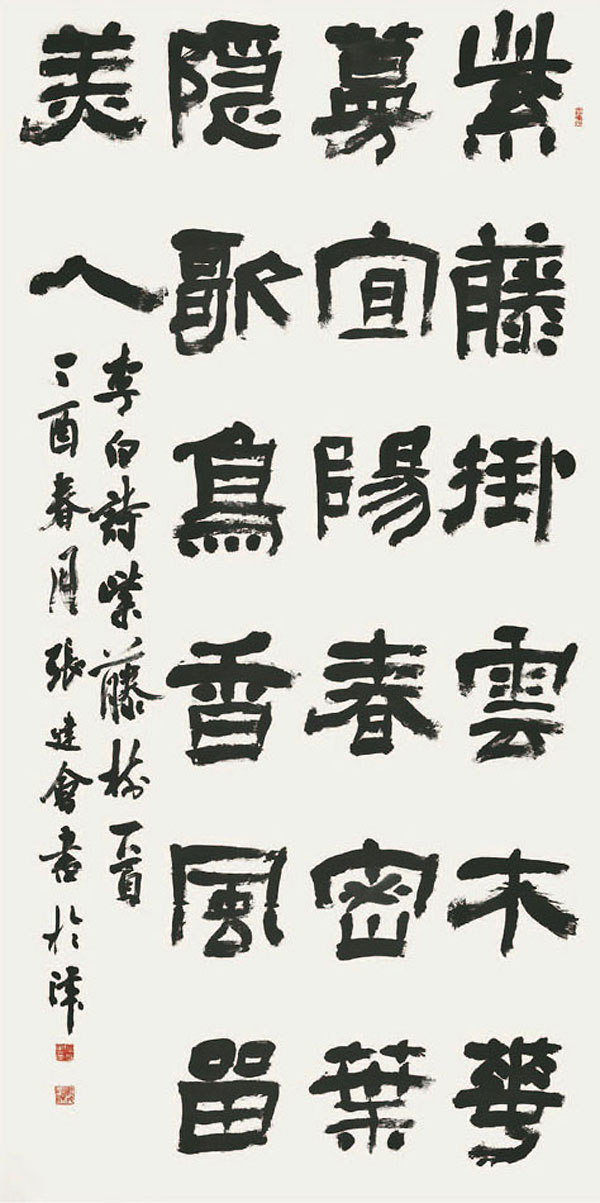 紫藤掛雲木華
蔓宜陽春密葉
隱歌鳥香風留
美人
李白詩紫藤樹一首
丁酉春月張建會書於津